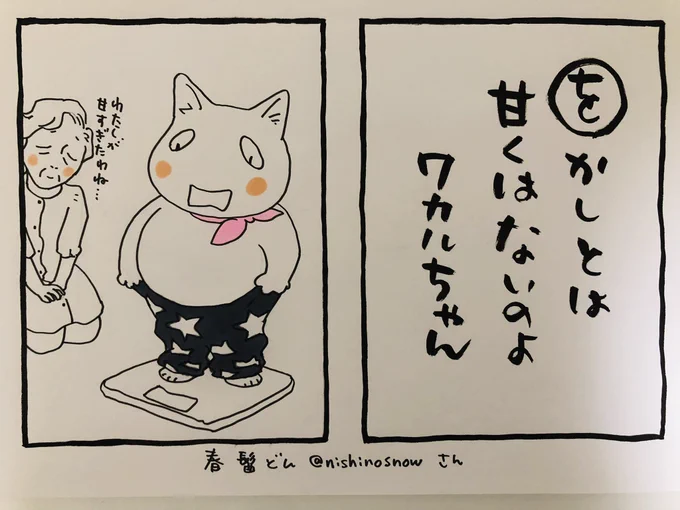 をかしとは
甘くはないのよ
ワカルちゃん
わたしが
甘すぎたわね…
春髷どん @nishinosnow さん